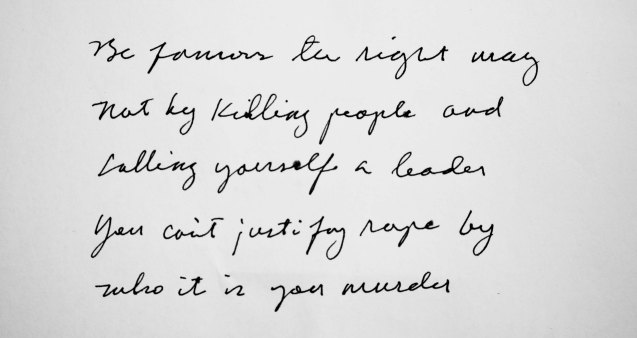 Be famous the right way
Not by Killing people and
Calling yourself a leader
You can't justify rape by
who it is you murder